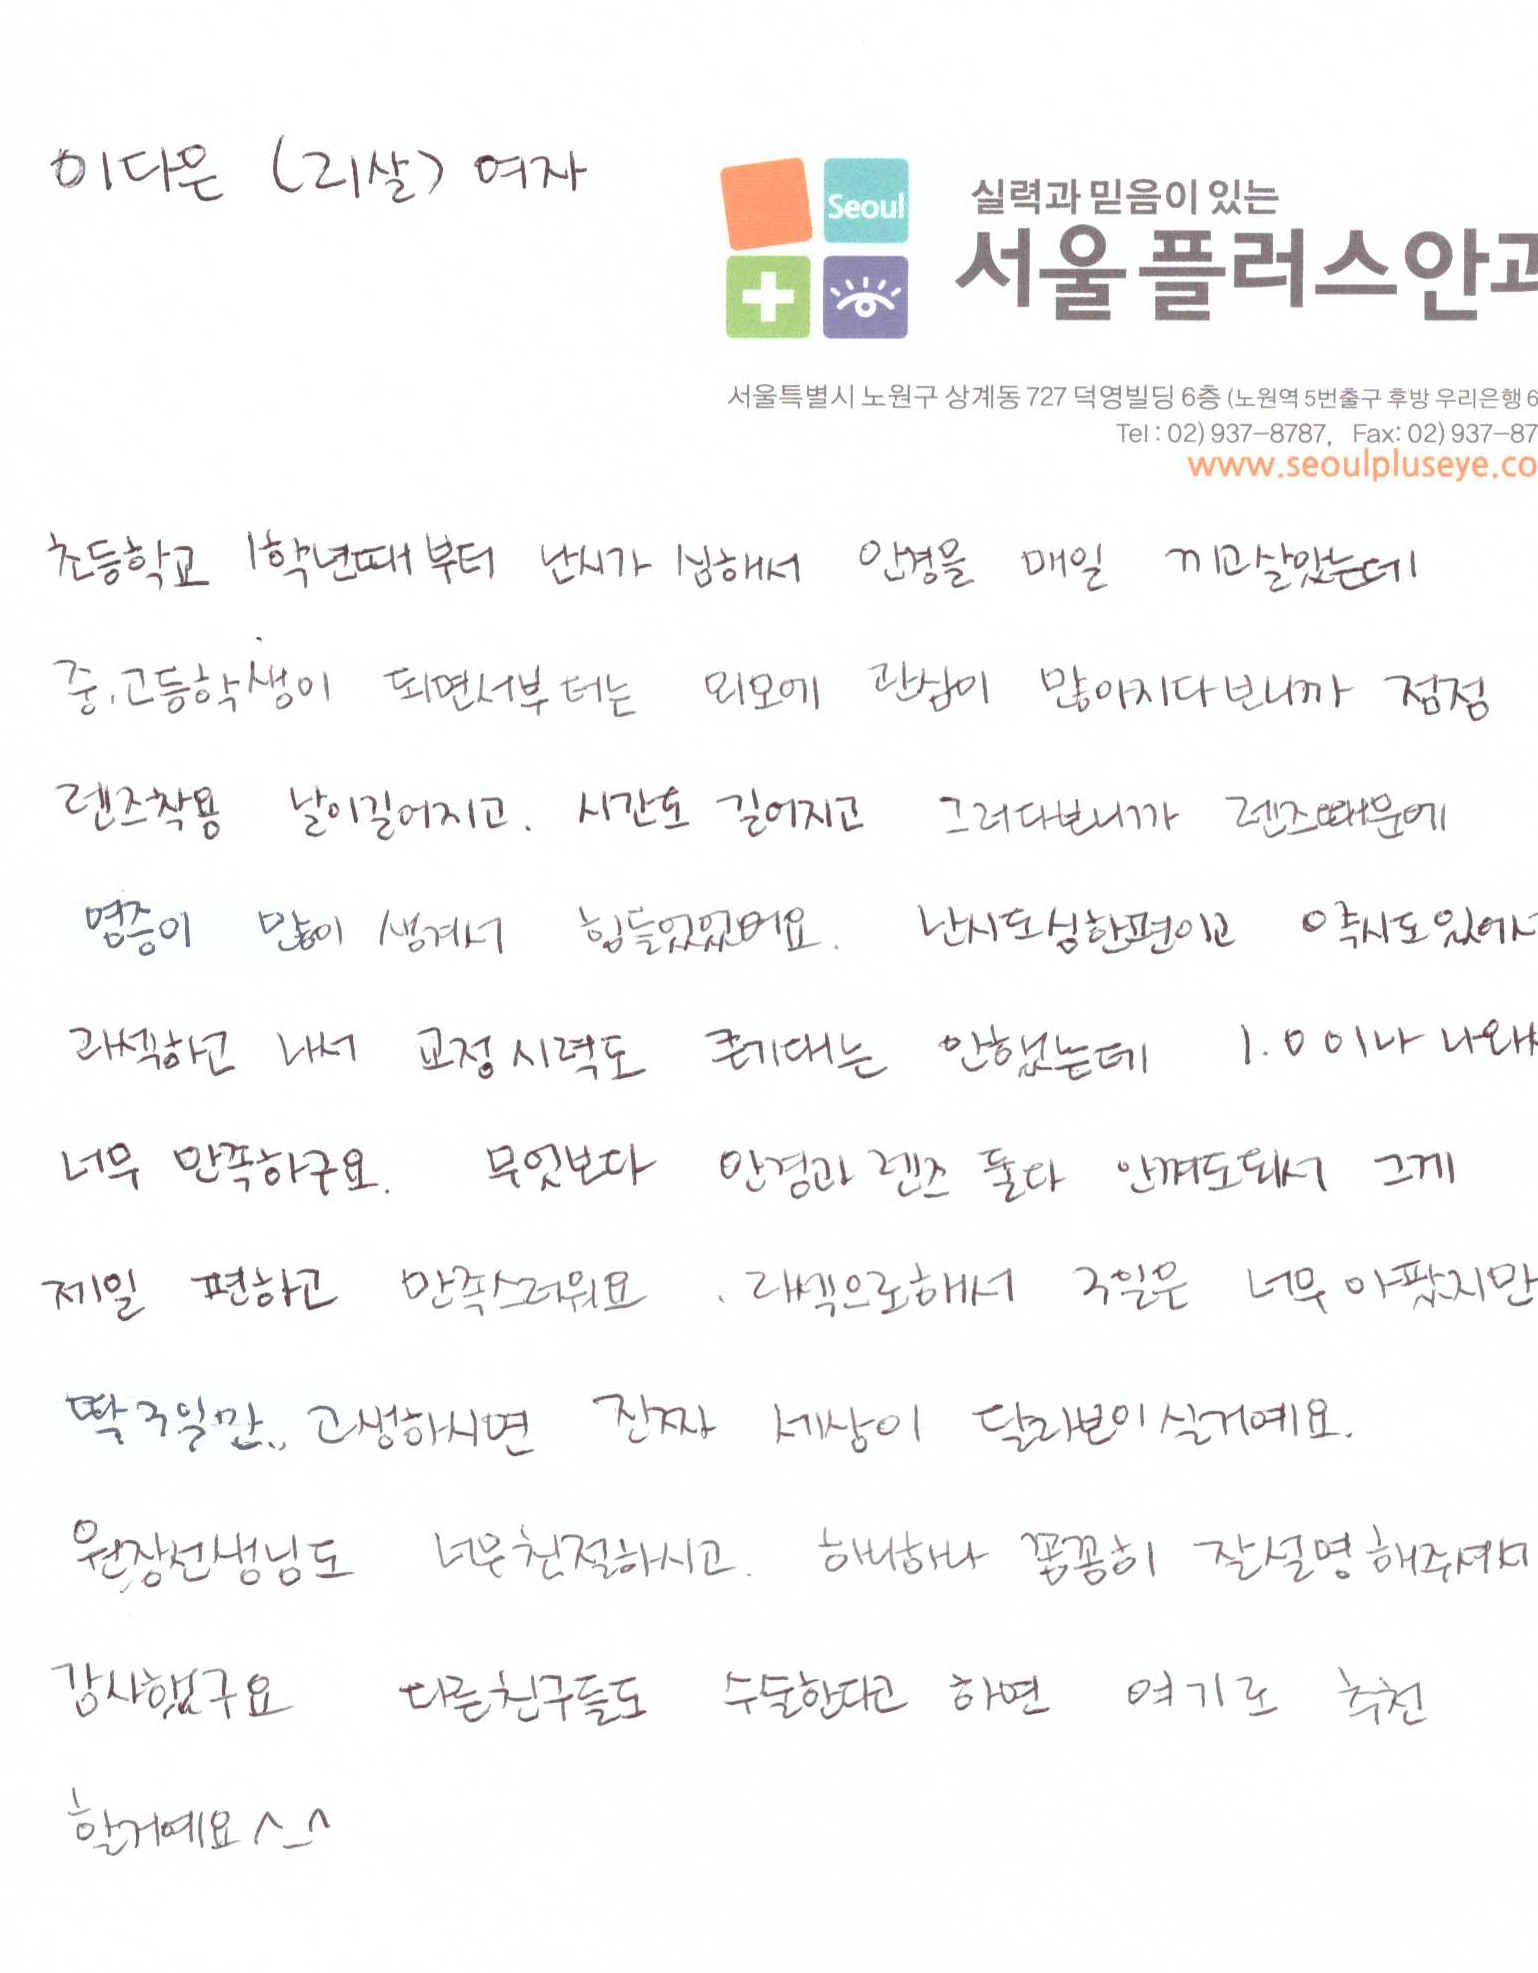 이다은 (21살) 여자
Seoul
실력과 믿음이 있는
서울플러스안과
서울특별시 노원구 상계동 727 덕영빌딩 6층 (노원역 5번출구 후방 우리은행 6
Tel : 02) 937-8787, Fax: 02) 937-87
www.seoulpluseye.co
초등학교 1학년때부터 난시가 심해서 안경을 매일 끼고살았는데
중,고등학생이 되면서부터는 외모에 관심이 많아지다보니까 점점
렌즈착용 날이길어지고. 시간도 길어지고 그러다보니까 렌즈때문에
염증이 많이 생겨서 힘들었었어요. 난시도심한편이고 약시도있어서
라섹하고 나서 교정시력도 큰기대는 안했는데 1.0이나 나와서
너무 만족하구요. 무엇보다 안경과 렌즈 둘다 안껴도되서 그게
제일 편하고 만족스러워요. 라섹으로해서 3일은 너무 아팠지만
딱 3일만.. 고생하시면 진짜 세상이 달라보이실거예요.
원장선생님도 너무친절하시고. 하나하나 꼼꼼히 잘설명해주셔서
감사했구요 다른친구들도 수술한다고 하면 여기로 추천
할거예요 ^_^